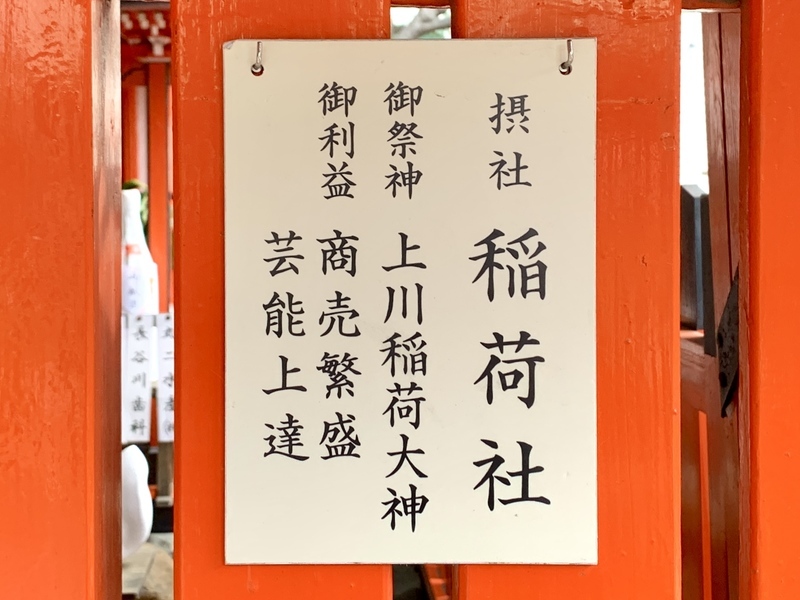 摂社 稲荷社
御祭神 上川稲荷大神
御利益 商売繁盛
芸能上達
長谷川歯科